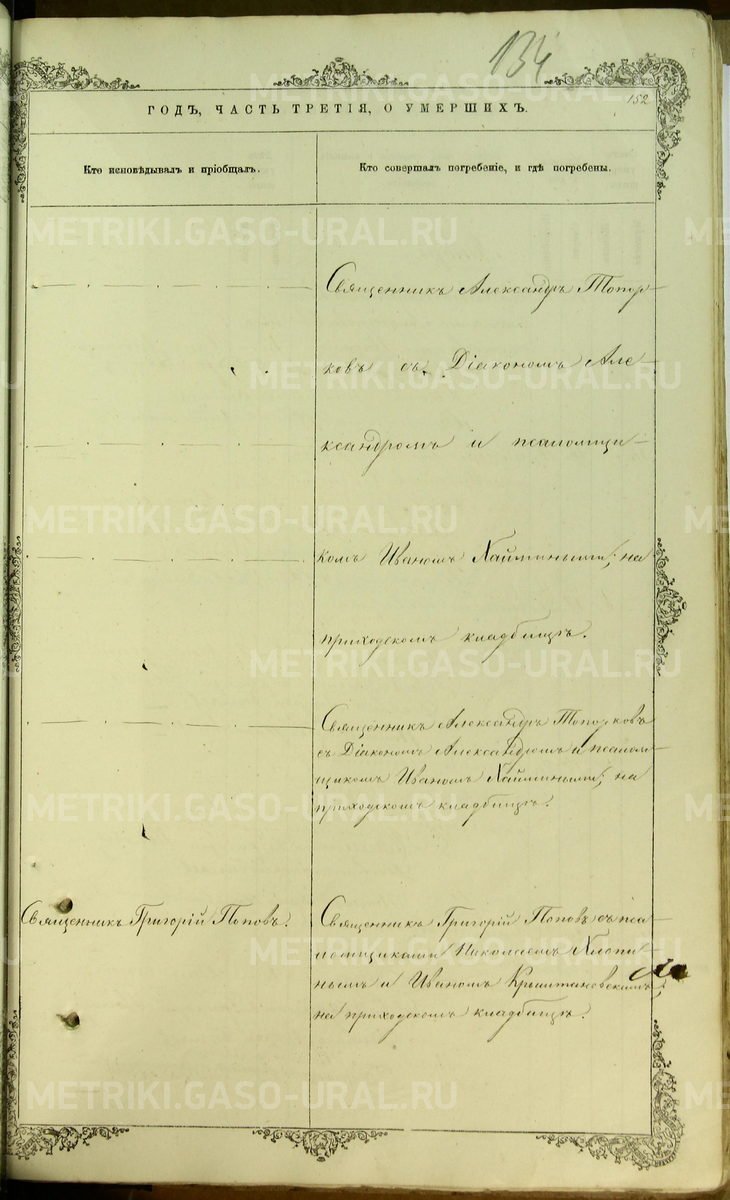 134
152
ГОДЪ, ЧАСТЬ ТРЕТІЯ, О УМЕРШИХЪ.
Кто исповѣдывалъ и пріобщалъ.
Кто совершалъ погребеніе, и гдѣ погребены.
Священникъ Александръ Топор-
ковъ съ Діакономъ Але-
ксандромъ и псаломщи-
комъ Иваномъ Хаймиными; на
приходскомъ кладбищѣ.
Священникъ Александръ Топорковъ
съ Діакономъ Александромъ и псалом-
щикомъ Иваномъ Хаймиными; на
приходскомъ кладбищѣ.
Священникъ Григорій Поповъ.
Священникъ Григорій Поповъ съ пса-
ломщиками Николаемъ Хлопи-
нымъ и Иваномъ Криштановскимъ,
на приходскомъ кладбищѣ.
METRIKI.GASO-URAL.RU